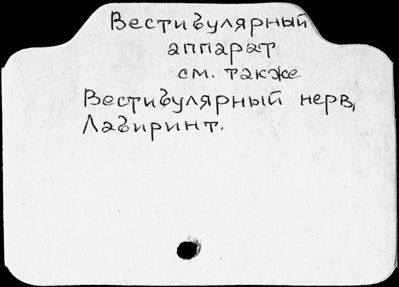 Вестибулярный
аппарат
см. также
Вестибулярный нерв,
Лабиринт.